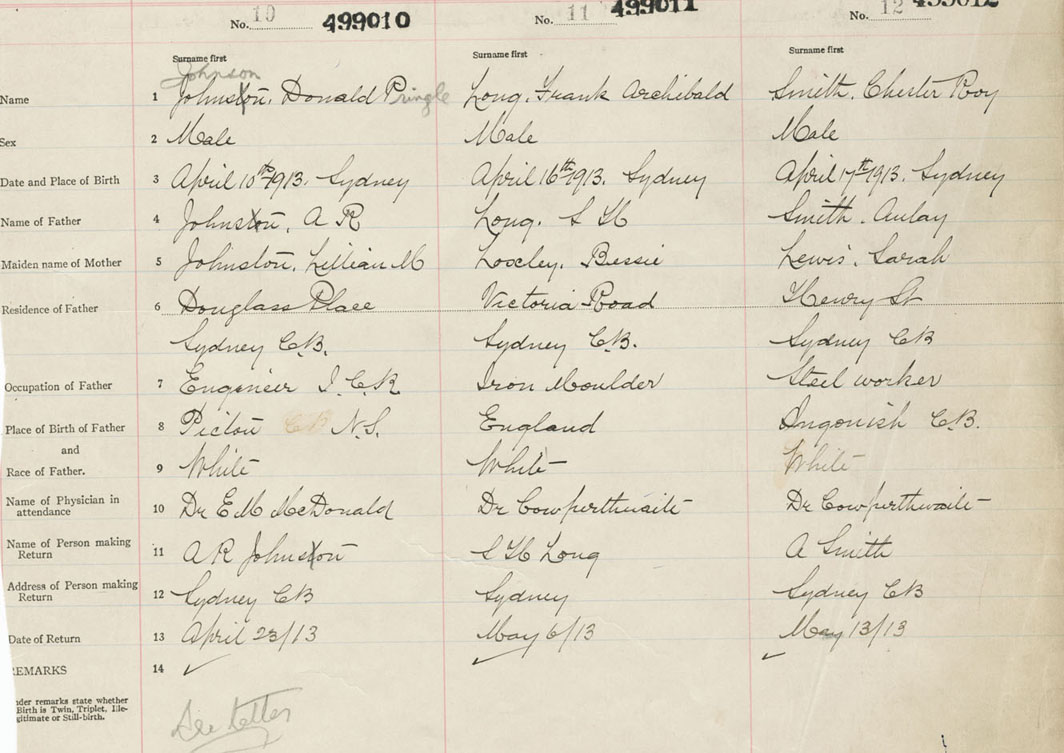 No. 10 499010 No. 11 499011 No. 12 499012
Surname first Surname first Surname first
Johnson
Name 1 Johnston, Donald Pringle Long, Frank Archibald Smith, Chester Roy
Sex 2 Male Male Male
Date and Place of Birth 3 April 10th 1913. Sydney April 16th 1913. Sydney April 17th 1913. Sydney
Name of Father 4 Johnston, A R Long. S H Smith. Aulay
Maiden name of Mother 5 Johnston, Lillian M Loxley. Bessie Lewis. Sarah
Residence of Father 6 Douglass Place Victoria Road Henry St
Sydney C.B. Sydney C.B. Sydney CB
Occupation of Father 7 Engineer I.C.R Iron Moulder Steel worker
Place of Birth of Father 8 Pictou CB N.S. England Ingonish C.B.
and
Race of Father. 9 White White White
Name of Physician in attendance 10 Dr E M McDonald Dr Cowperthwaite Dr Cowperthwaite
Name of Person making Return 11 A R Johnston S H Long A Smith
Address of Person making Return 12 Sydney CB Sydney Sydney CB
Date of Return 13 April 23/13 May 6/13 May 13/13
EMARKS 14 ✓ ✓ ✓
nder remarks state whether
Birth is Twin, Triplet, Ille-
gitimate or Still-birth.
See letter